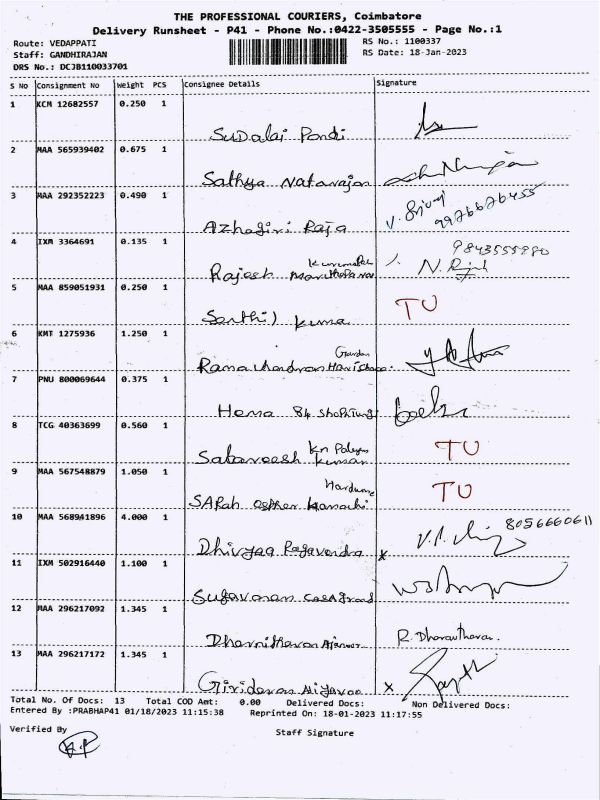 THE PROFESSIONAL COURIERS, Coimbatore
Delivery Runsheet - P41 - Phone No.:0422-3505555 - Page No.:1
Route: VEDAPPATI
RS No.: 1100337
Staff: GANDHIRAJAN
RS Date: 18-Jan-2023
DRS No.: DCJB110033701
S No Consignment No Weight PCS Consignee Details Signature
1 KCM 12682557 0.250 1
Sudalai Pandi
2 MAA 565939402 0.675 1
Sathya Natarajan
3 MAA 292352223 0.490 1
Azhagiri Raja
9976676455
4 IXM 3364691 0.135 1
9843555990
Rajesh
5 MAA 859051931 0.250 1
Senthil Kuma TU
6 KMT 1275936 1.250 1
Garden
Ramachandran
7 PNU 800069644 0.375 1
Hema 84
8 TCG 40363699 0.560 1
Kn
Kumar TU
9 MAA 567548879 1.050 1
TU
SARah esther
10 MAA 568941896 4.000 1
8056660611
Dhivyaa Ragavendra x
11 IXM 502916440 1.100 1
Sugavanan
12 MAA 296217092 1.345 1
13 MAA 296217172 1.345 1
x
Total No. Of Docs: 13 Total COD Amt: 0.00 Delivered Docs: Non Delivered Docs:
Entered By :PRABHAP41 01/18/2023 11:15:38 Reprinted On: 18-01-2023 11:17:55
Verified By
Staff Signature